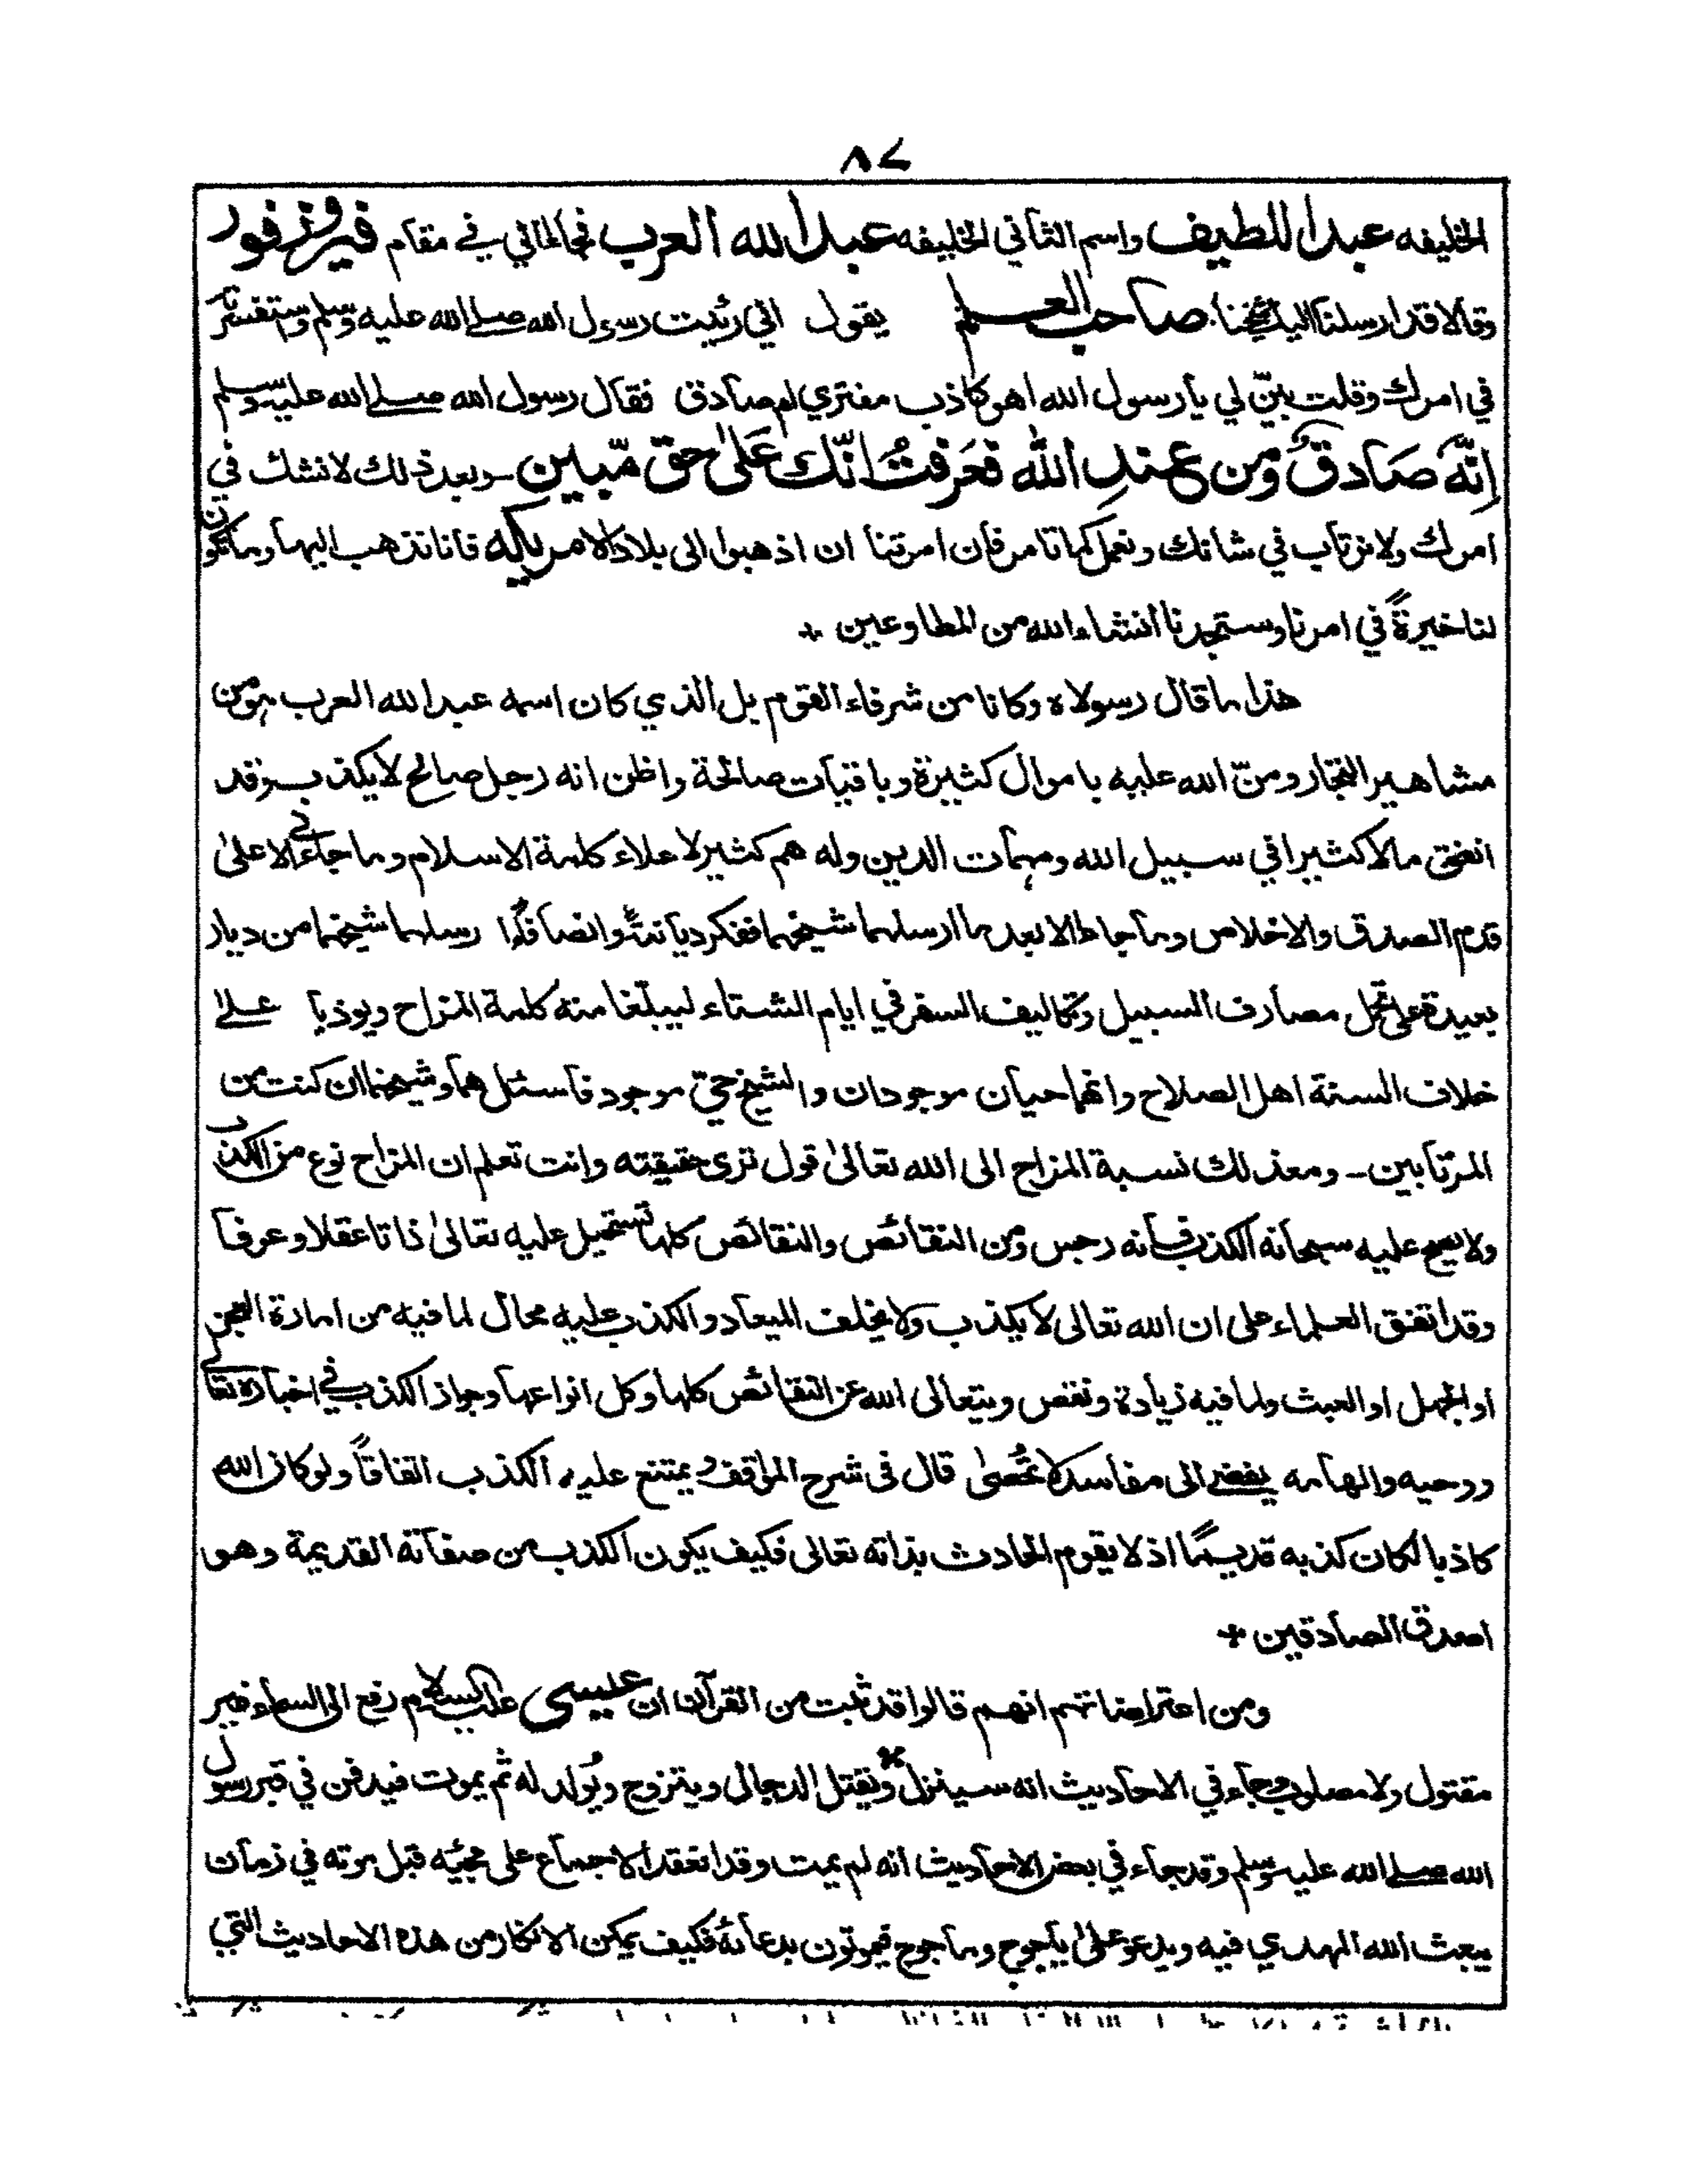 ٨٧
الخليفه عبد اللطيف واسم الثاني الخليفه عبد الله العرب فجاءاني في مقام فيروزفور
وقالا قد ارسلنا اليك شيخنا صاحب العلم يقول اني رئيت رسول الله صلے الله عليه وسلم واستفسرته
في امرك وقلت بيّن لي يا رسول الله اهو كاذب مفتري ام صادق فقال رسول الله صلے الله عليه وسلم
اِنّهٗ صَادقٌ ومن عندِ اللّٰه فعَرفتُ انّك عَلىٰ حق مّبين ــ وبعد ذلك لا نشك في
امرك ولا نرتاب في شانك ونعمل كما تامر فان امرتنا ان اذهبوا الى بلاد الامريكه فانا نذهب اليها وما تكون
لنا خيرةً في امرنا وستجدنا انشاء الله من المطاوعين +
هذا ما قال رسولاه وكانا من شرفاء القوم بل الذي كان اسمه عبد الله العرب هو من
مشاهير التجار ومنّ الله عليه باموال كثيرة وباقيات صالحة واظن انه رجل صالح لا يكذب وقد
انفق مالا كثيرا في سبيل الله ومهمات الدين وله هم كثير لاعلاء كلمة الاسلام وما جاءني الا علىٰ
قدم الصدق والاخلاص وما جاءا الا بعد ما ارسلهما شيخهما ففكر ديانتًا وانصافًا ارسلهما شيخهما من ديار
بعيدة على تحمل مصارف السبيل وتكاليف السفر في ايام الشتاء ليبلّغا منه كلمة المزاح ويوذيا علے
خلاف السنة اهل الصلاح وانهما حيان موجودان والشيخ حيّ موجود فاسئلهما وشيخهما ان كنت من
المرتابين ــ ومعذلك نسبة المزاح الى الله تعالىٰ قول ترى حقيقته وانت تعلم ان المزاح نوع من الكذب
ولا يصح عليه سبحانه الكذب فانه رجس ومن النقائص والنقائص كلها تستحيل عليه تعالىٰ ذاتا عقلا وعرفا
وقد اتفق العلماء على ان الله تعالى لا يكذب ولا يخلف الميعاد والكذب عليه محال لما فيه من امارة العجز
او الجهل او العبث ولما فيه زيادة ونقص ويتعالى الله عن النقائص كلها وكل انواعها وجواز الكذب في اخباره تعالىٰ
ووحيه والهامه يفضے الى مفاسد لا تُحصىٰ قال فى شرح المواقف ويمتنع عليه الكذب اتفاقاً ولو كان الله
كاذبا لكان كذبه قديمًا اذ لا يقوم الحادث بذاته تعالى فكيف يكون الكذب من صفاته القديمة وهو
اصدق الصادقين +
ومن اعتراضاتهم انهم قالوا قد ثبت من القرآن ان عيسى عليه السلام رفع الى السماء غير
مقتول ولا مصلوب وجاء في الاحاديث انه سينزل ويقتل الدجال ويتزوج ويُولد له ثم يموت فيدفن في قبر رسول
الله صلے الله عليه وسلم وقد جاء في بعض الاحاديث انه لم يمت وقد انعقد الاجماع على مجيّه قبل موته في زمان
يبعث الله المهدي فيه ويدعو علىٰ ياجوج وماجوج فيموتون بدعائه فكيف يمكن الانكار من هذه الاحاديث التي